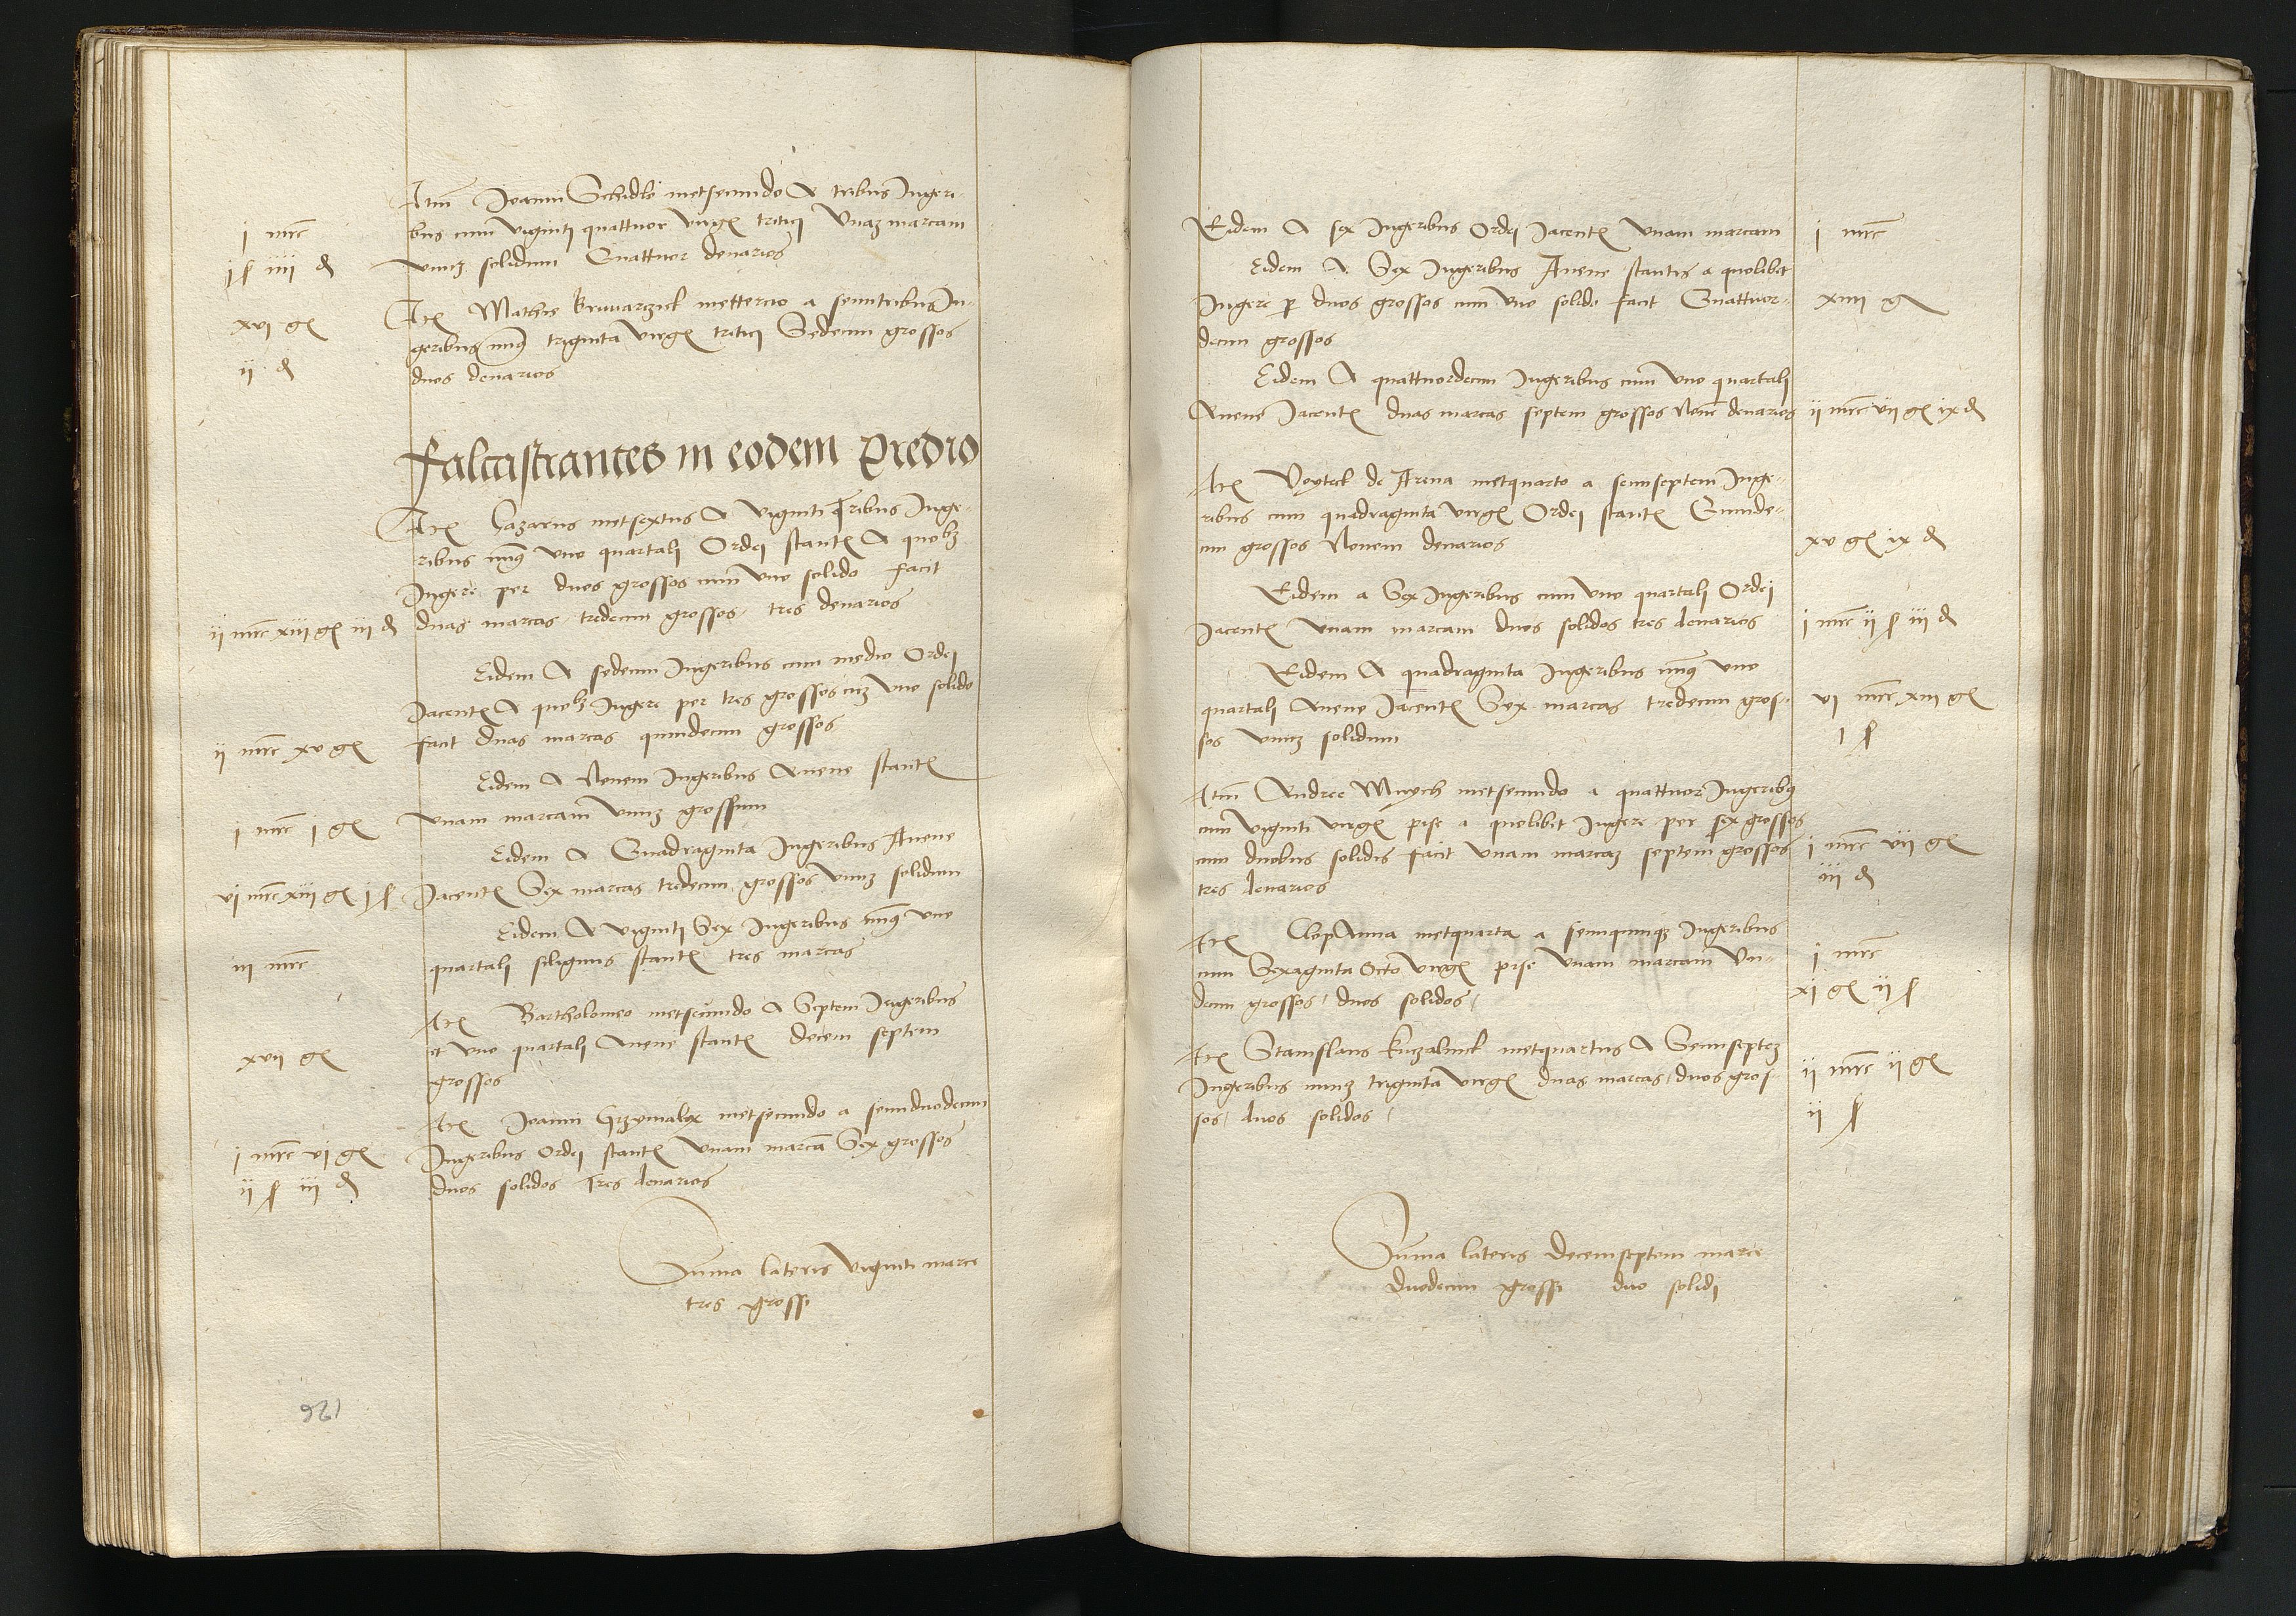 Itm Joanni Schidlo metsecundo A tribus Jugeri-
bus cum viginti quattuor virgꝭ tritici Vnaʒ marcam
vnuʒ solidum Quattuor denarios
j mrc
j ſ iiii ₰
Itꝭ Mathie mettercio a semitribus Ju-
geribus min9 triginta virgꝭ tritici Sedecim grossos
duos denarios
xvi gꝭ
ii ₰
Falcastrantes in eodem Predio
Itꝭ Lazarus metsextus A viginti Tribus Juge-
ribus min9 vno quartali Ordei stantꝭ A quolʒ
Jugere per duos grossos cum vno solido facit
duas marcas tredecim grossos tres denarios
ii mrc xiii gꝭ iii ₰
Eidem A sedecim Jugeribus cum medio Ordei
Jacentꝭ A quolʒ Jugere per tres grossos cuʒ vno solido
facit duas marcas quindecim grossos
ii mrc xv gꝭ
Eidem A Nouem Jugeribus Auene stantꝭ
vnam marcam vnuʒ grossum
j mrc j gꝭ
Eidem A Quadraginta Jugeribus Auene
Jacentꝭ Sex marcas tredecim grossos vnuʒ solidum
vi mrc xiii gꝭ j ſ
Eidem A viginti Sex Jugeribus min9 vno
quartali siliginis stantꝭ tres marcas
iii mrc
Itꝭ Bartholomeo metsecundo A Septem Jugeribus
et vno quartali Auene stantꝭ decem septem
grossos
xvii gꝭ
Itꝭ Joanni Grzymala metsecundo a semiduodecim
Jugeribus Ordei stantꝭ Vnam marcā Sex grossos
duos solidos Tres denarios
j mrc vi gꝭ
ii ſ iii ₰
Summa lateris viginti marce
tres grossi
126
Eidem A sex Jugeribus Ordei Jacentꝭ vnam marcam
i mrc
Eidem A Sex Jugeribus Auene stantis a quolibet
Jugere p duos grossos cum vno solido facit Quattuor-
decim grossos
xiiii gꝭ
Eidem A quattuordecim Jugeribus cum vno quartali
Auene Jacentꝭ duas marcas septem grossos Nouē denarios
ii mrc vii gꝭ ix ₰
Itꝭ Voytek de Arena metquarto a semiseptem Juge-
ribus cum quadraginta virgꝭ Ordei stantꝭ Quinde-
cim grossos Nouem denarios
xv gꝭ ix ₰
Eidem a Sex Jugeribus cum vno quartali Ordei
Jacentꝭ vnam marcam duos solidos tres denarios
j mrc ii ſ iii ₰
Eidem A quadraginta Jugeribus min9 vno
quartali Auene Jacentꝭ Sex marcas tredecim gros-
sos vnuʒ solidum
vi mrc xiii gꝭ
i ſ
Itm Andree Mnych metsecundo a quattuor Jugeribꝰ
cum viginti virgꝭ pise a quolibet Jugere per sex grossos
cum duobus solidis facit vnam marcaʒ septem grossos
tres denarios
j mrc vii gꝭ
iii ₰
Itꝭ Anna metquarta a semiquinqʒ Jugeribus
cum Sexaginta Octo virgꝭ pise vnam marcam vn-
decim grossos duos solidos
j mrc
xi gꝭ ii ſ
Itꝭ Stanislaus metquartus A Semisepteʒ
Jugeribus triginta virgꝭ duas marcas duos gros-
sos duos solidos
ii mrc ii gꝭ
ii ſ
Summa lateris decemseptem marce
duodecim grossi duo solidi